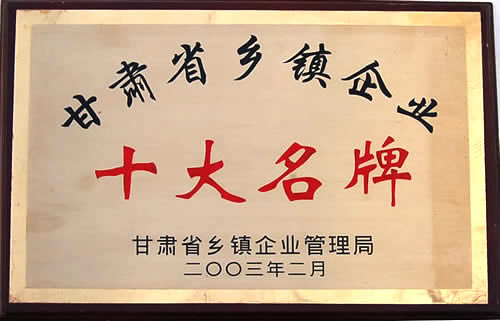 甘肃省乡镇企业
十大名牌
甘肃省乡镇企业管理局
二〇〇三年二月